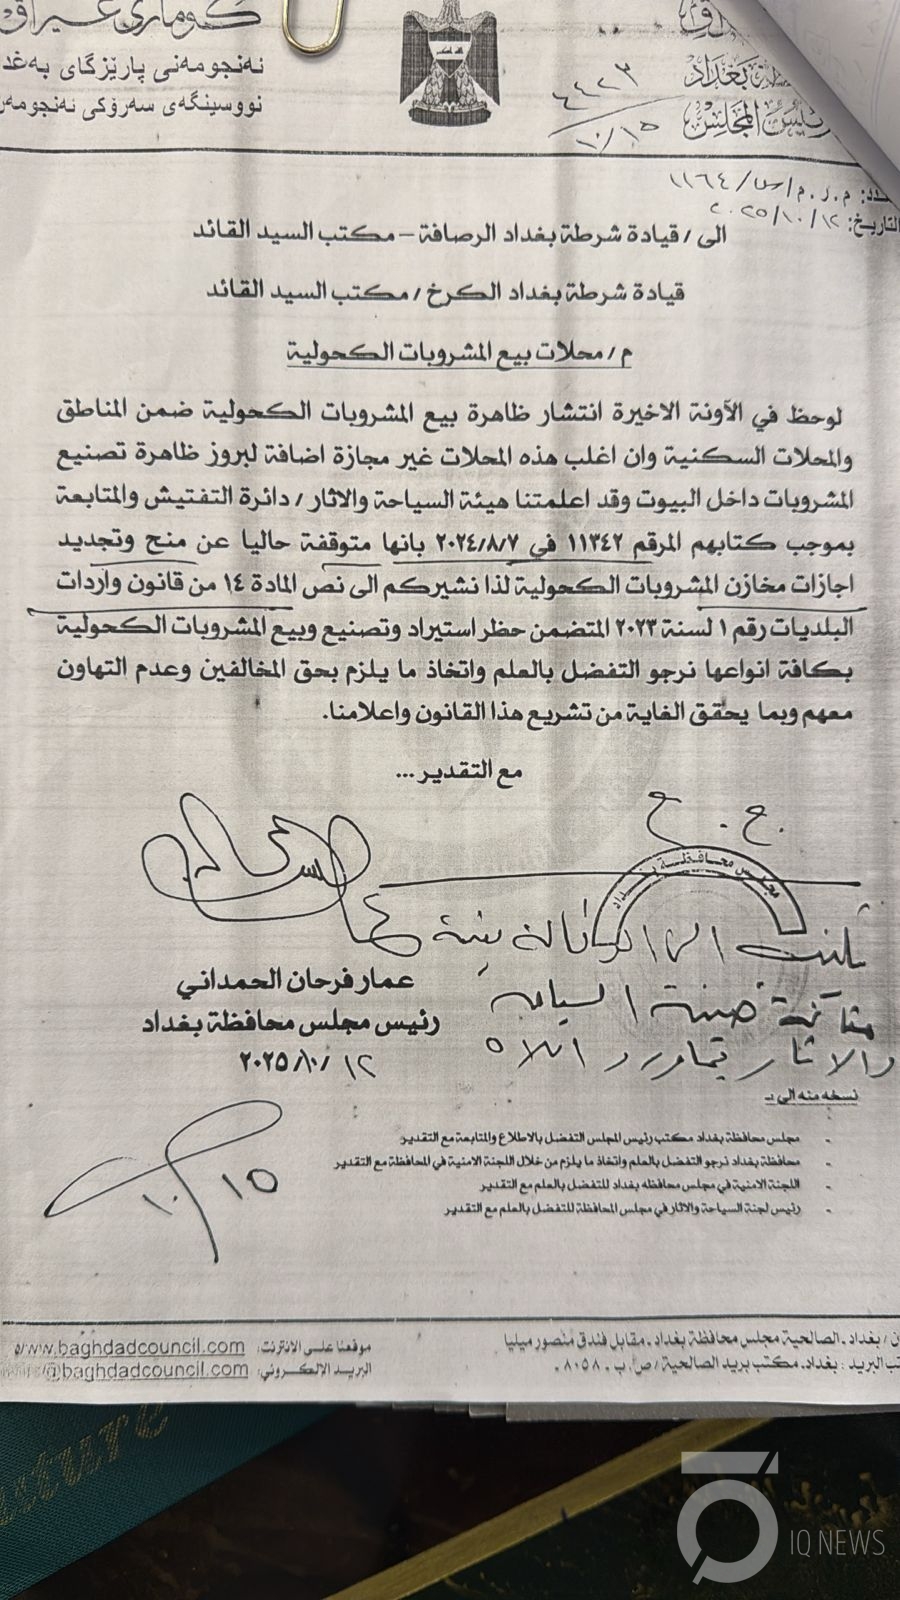 كۆماری عێراق
ئەنجومەنی پارێزگای بەغد
نووسینگەی سەرۆکی ئەنجومەن
بغداد
رئيس المجلس
٤٤٢٣
١٠/١٥
العدد: م.ر.م/س/١١٦٤
التاريخ: ٢٠٢٥/١٠/١٢
الى / قيادة شرطة بغداد الرصافة – مكتب السيد القائد
قيادة شرطة بغداد الكرخ / مكتب السيد القائد
م / محلات بيع المشروبات الكحولية
لوحظ في الآونة الاخيرة انتشار ظاهرة بيع المشروبات الكحولية ضمن المناطق
والمحلات السكنية وان اغلب هذه المحلات غير مجازة اضافة لبروز ظاهرة تصنيع
المشروبات داخل البيوت وقد اعلمتنا هيئة السياحة والاثار / دائرة التفتيش والمتابعة
بموجب كتابهم المرقم ١١٣٤٢ في ٢٠٢٤/٨/٧ بانها متوقفة حاليا عن منح وتجديد
اجازات مخازن المشروبات الكحولية لذا نشيركم الى نص المادة ١٤ من قانون واردات
البلديات رقم ١ لسنة ٢٠٢٣ المتضمن حظر استيراد وتصنيع وبيع المشروبات الكحولية
بكافة انواعها نرجو التفضل بالعلم واتخاذ ما يلزم بحق المخالفين وعدم التهاون
معهم وبما يحقق الغاية من تشريع هذا القانون واعلامنا.
مع التقدير ...
مجلس محافظة بغداد
عمار فرحان الحمداني
رئيس مجلس محافظة بغداد
٢٠٢٥/١٠/ ١٢
والاثار
نسخه منه الى :-
- مجلس محافظة بغداد مكتب رئيس المجلس التفضل بالاطلاع والمتابعة مع التقدير
- محافظة بغداد نرجو التفضل بالعلم واتخاذ ما يلزم من خلال اللجنة الامنية في المحافظة مع التقدير
- اللجنة الامنية في مجلس محافظه بغداد للتفضل بالعلم مع التقدير
- رئيس لجنة السياحة والاثار في مجلس المحافظة للتفضل بالعلم مع التقدير
١٠/١٥
ن / بغداد . الصالحية مجلس محافظة بغداد . مقابل فندق منصور ميليا
تب البريد : بغداد . مكتب بريد الصالحية / ص . ب . ٨٠٥٨
موقعنا على الانترنت: www.baghdadcouncil.com
البريد الالكتروني: @baghdadcouncil.com
IQ NEWS